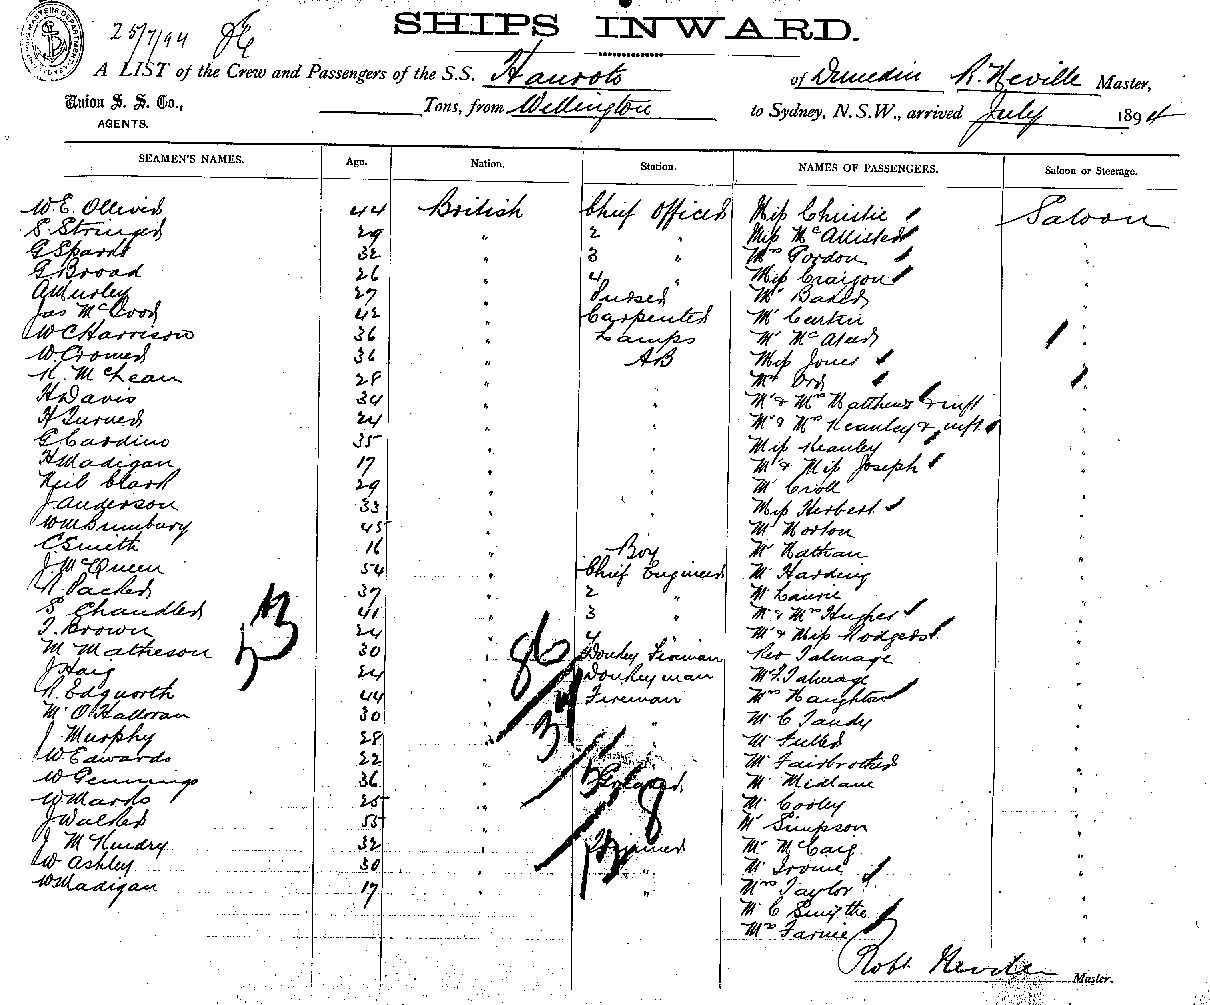 25/7/94
SHIPS INWARD.
A LIST of the Crew and Passengers of the S.S. Hauroto of Dunedin R. Neville Master,
Union S. S. Co., AGENTS. Tons, from Wellington to Sydney, N.S.W., arrived July 1894
SEAMEN'S NAMES. Age. Nation. Station. NAMES OF PASSENGERS. Saloon or Steerage.
W. E. Olliver 44 British Chief Officer Miss Christie Saloon
S Stringer 29 " 2 " Miss McAllister "
G Sparks 32 " 3 " Mrs Gordon "
G Broad 26 " 4 " Miss Craigon "
27 " Purser Mr Baker "
Jas McCood 42 " Carpenter Mr Curtin "
W C Harrison 36 " Lamps Mr "
W Cromer 36 " AB Miss Jones "
R. McLean 28 " " Ord "
H Davis 34 " " Mr & Mrs Matthews & inft "
H Turner 24 " " Mr & Mrs Keanley & inft "
G Cardino 35 " " Miss Keanley "
H Madigan 17 " " Mr & Miss Joseph "
Neil Clark 29 " " Mr Croll "
J Anderson 33 " " Miss Herbert "
Wm Bunbury 45 " " Mr Norton "
C Smith 16 " Boy Mr Nathan "
J McQueen 54 " Chief Engineer Mr Harding "
R Packer 37 " 2 " Mr Laurie "
S Chandler 41 " 3 " Mr & Mrs Hughes "
T. Brown 24 " 4 " Mr & Miss Rodgers "
M Matheson 30 " Donkey Fireman Rev Talmage "
J Haig 24 " Donkeyman Talmage "
R. Edgworth 44 " Fireman Mrs Naughton "
M O'Halloran 30 " " Mr C Tandy "
J Murphy 28 " " Mr Fuller "
W Edwards 22 " " Mr Fairbrother "
W Pennings 36 " Mr Medlane "
W Marks 25 " " Mr Cooley "
J Walker 55 " " Mr Simpson "
J McKendry 32 " Trimmer Mr McCaig "
W Ashley 30 " " Mr Irvine "
W Madigan 17 " " Mrs Taylor "
Mr C Smythe "
Mrs Farnie "
53
86
34
8
Robt Neville Master.